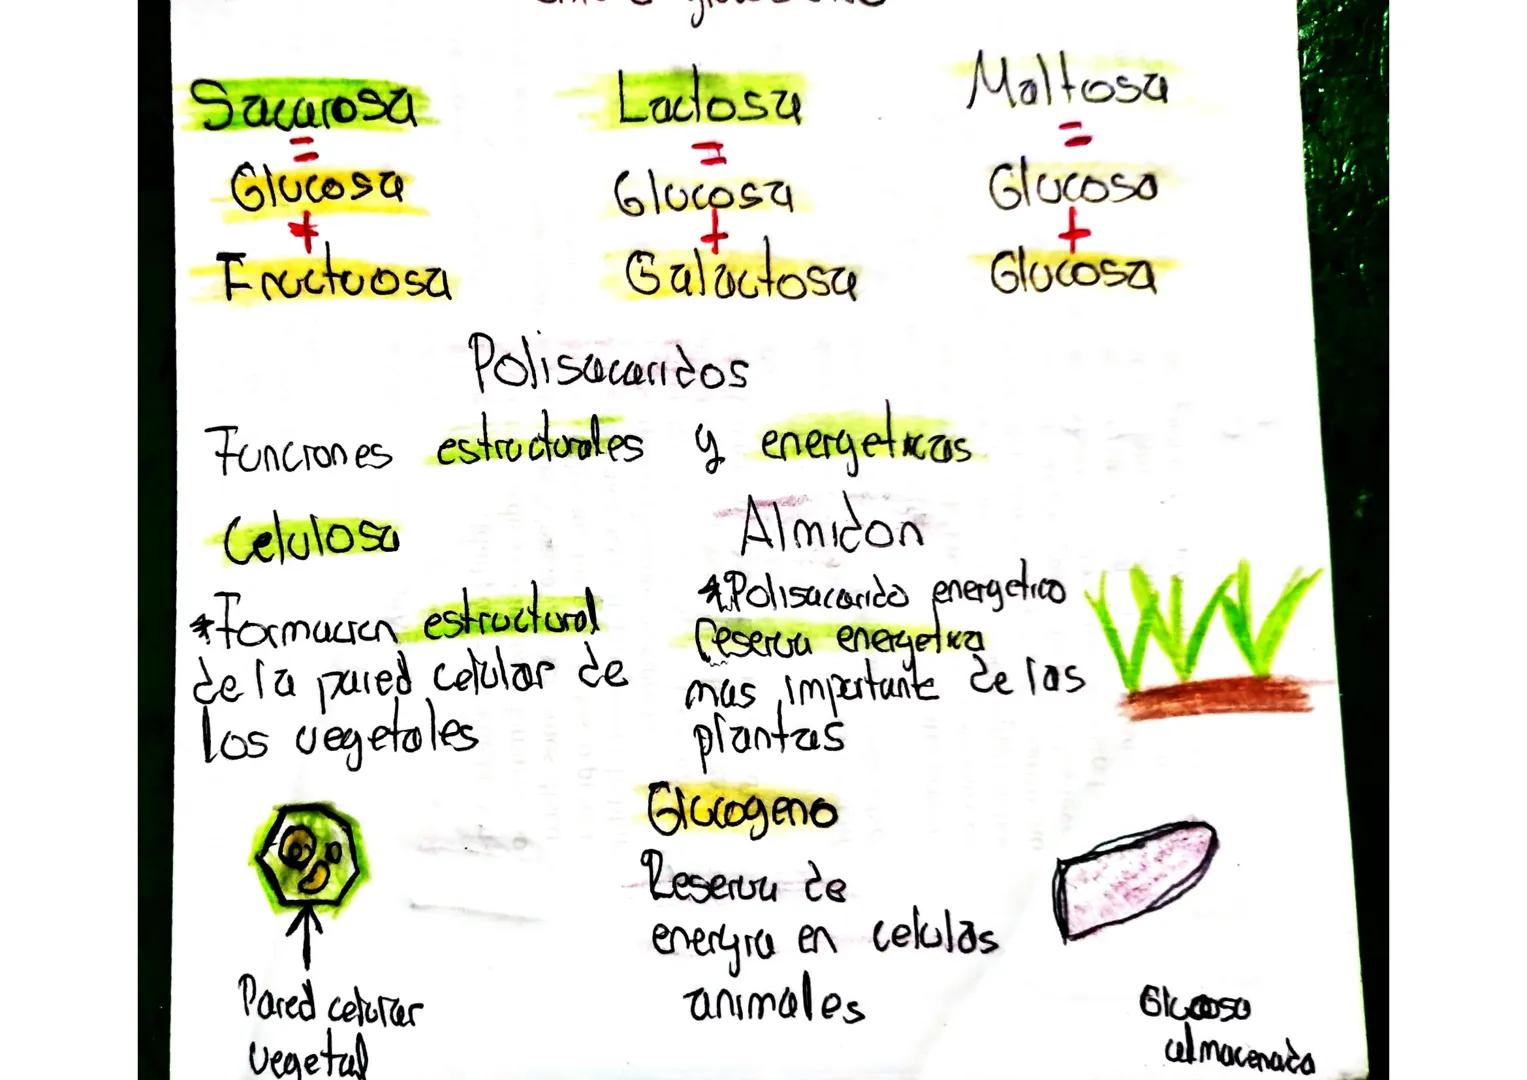 Sacarosa
=
Glucosa
+
Fructuosa
Lactosa
=
Glucosa
+
Galactosa
Maltosa
=
Glucosa
+
Glucosa
Polisacaridos
Funciones estructurales y energeticas
Celulosa
*Formacion estructural
de la pared celular de
los vegetales
Pared celular
vegetal
Almidon
*Polisacarido energetico
reserva energetica
mas importante de las
plantas
Glucogeno
Reserva de
energia en celulas
animales
Glucosa
almacenada